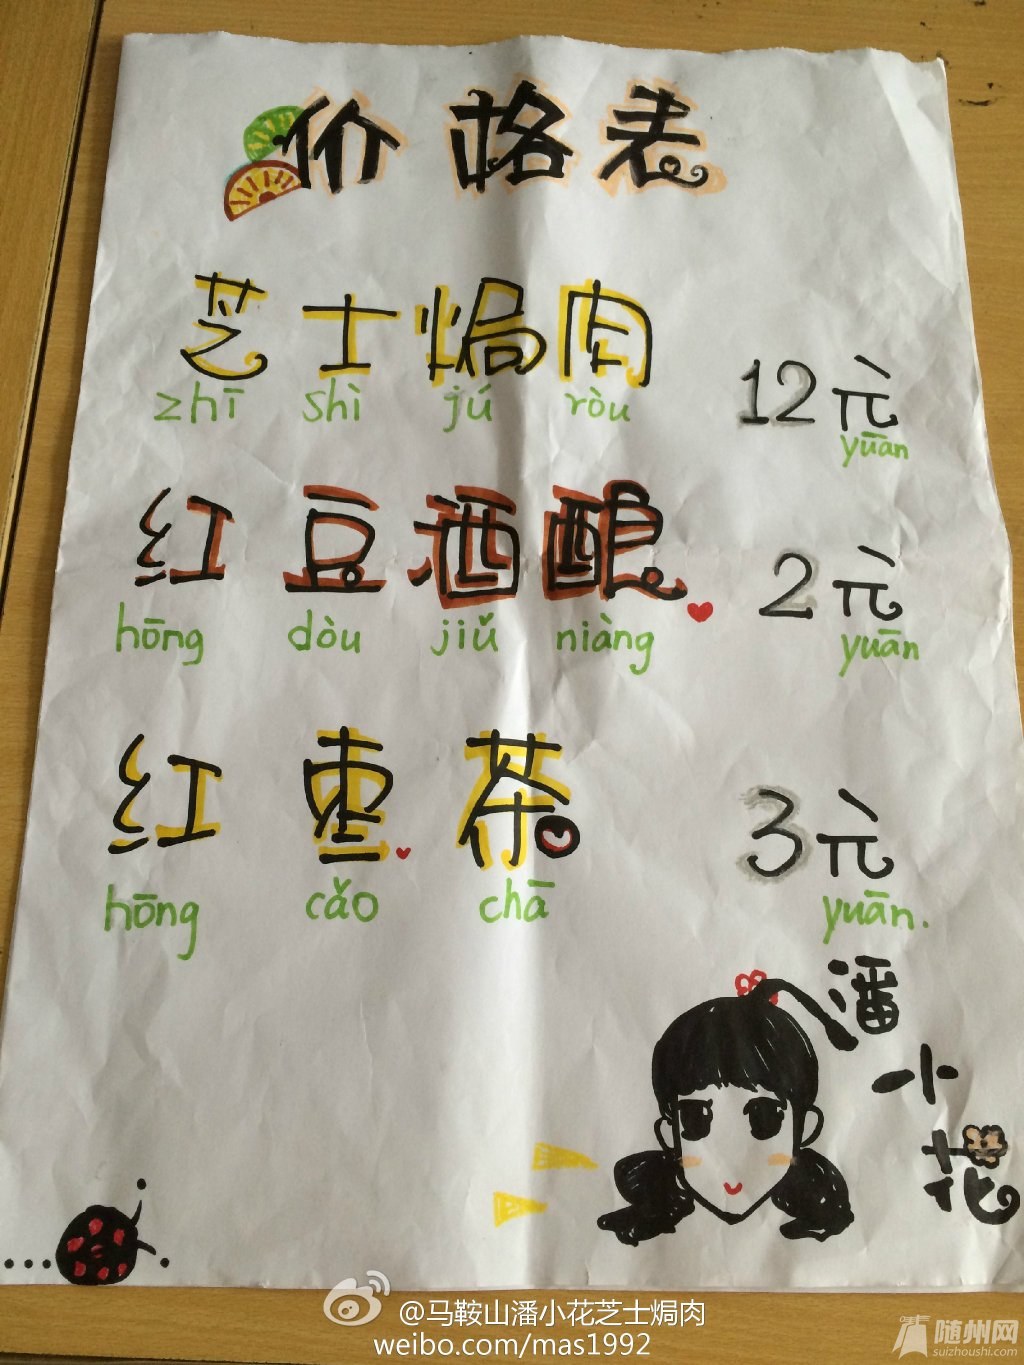 价格表
芝士焗肉 12元
zhī shì jú ròu yuān
红豆酒酿 2元
hōng dòu jiǔ niàng yuān
红枣茶 3元
hōng cǎo chā yuān.
潘小花
@马鞍山潘小花芝士焗肉
weibo.com/mas1992
随州网
suizhoushi.com